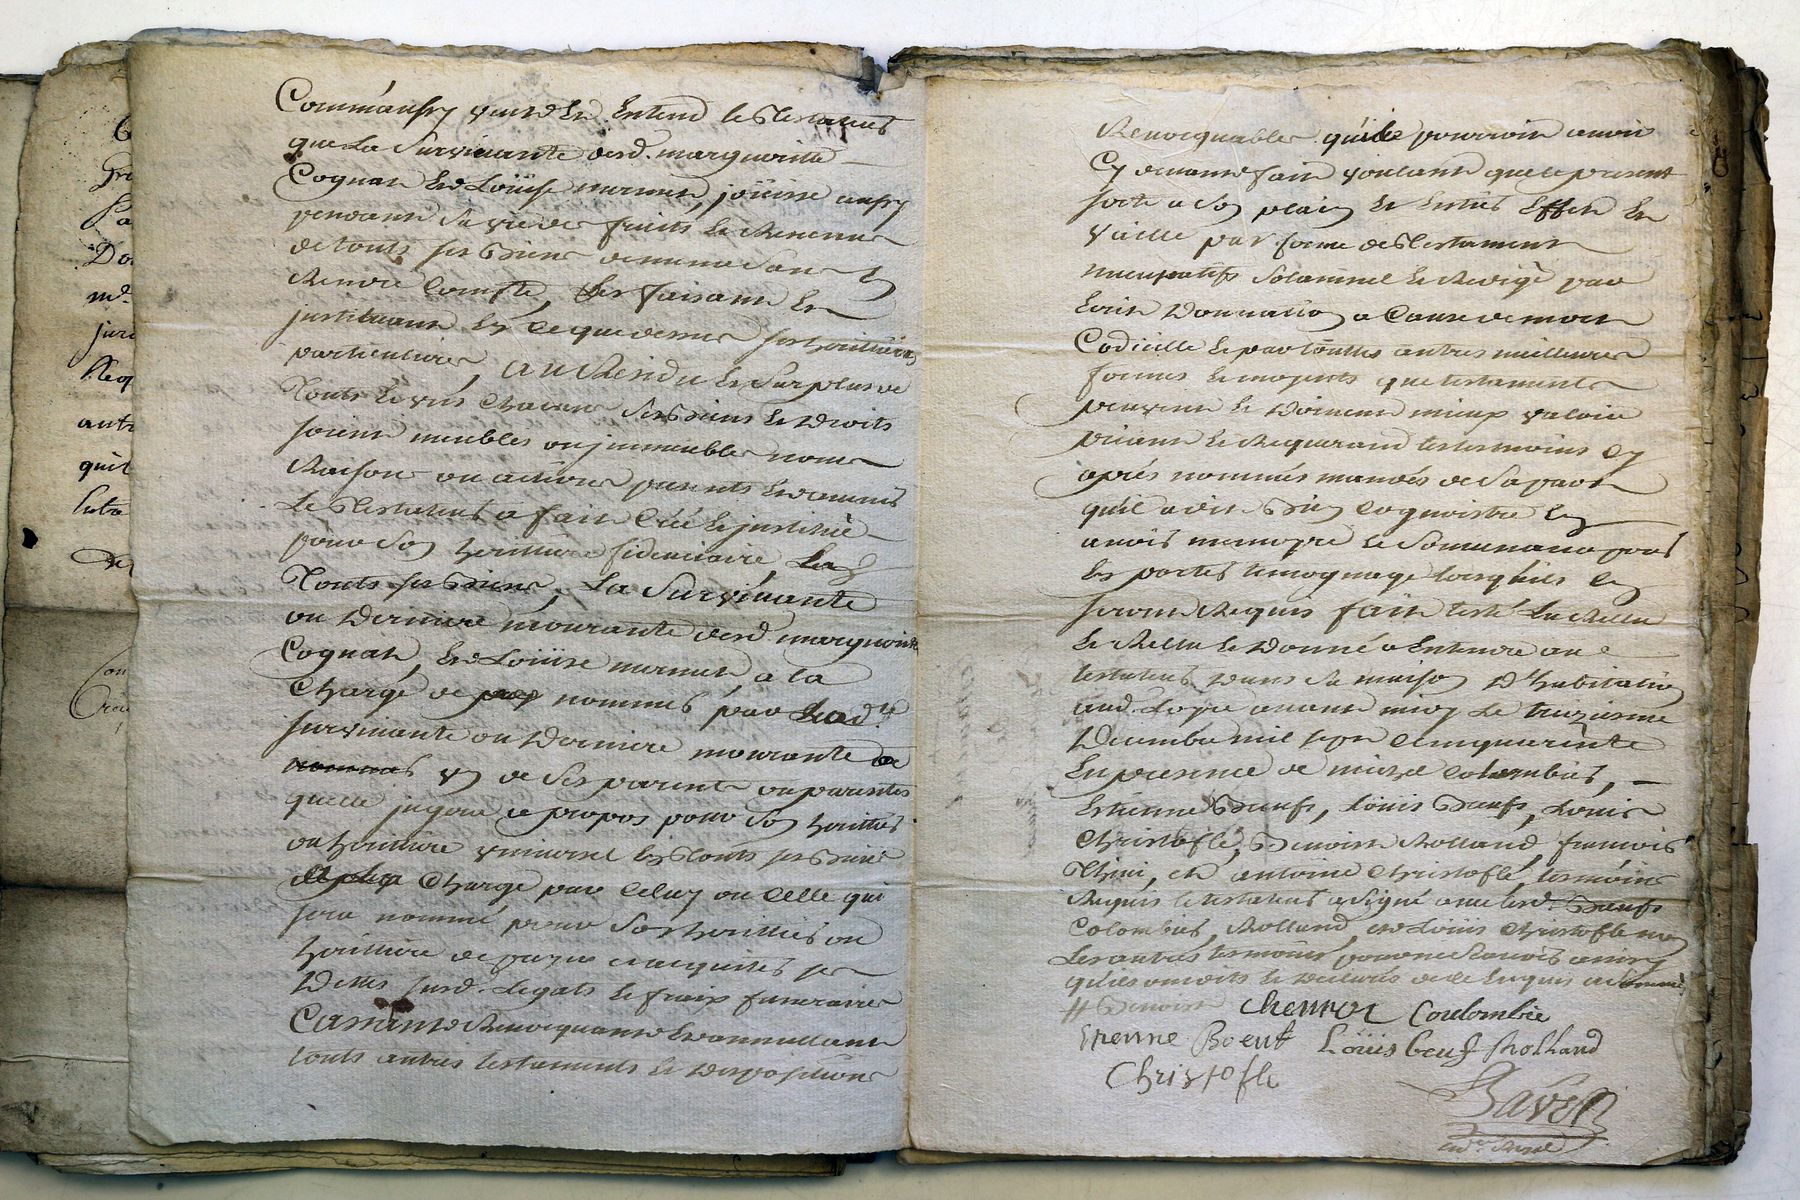 Comme aussy veut et Entend le Testateur
que La Survivante desd. margueritte
Cognat et Loüise jöuisse aussy
pendant Sa vie des fruits et Revenus
de touts ses Biens de meme Sans En
Rendre Compte, Les faisant et
jnstituant En Ce que dessus ses heritieres
particulieres, AU Residu et Surplus de
Touts et vns Chacuns Ses Biens et Droits
soient meubles ou jmmeubles noms
Raisons ou actions presents et avenir
Le Testateur a fait Créé et jnstitué
pour Son heritiere fiduciaire, En
Touts ses Biens, La Survivante
ou Derniere mourante desd. margueritte
Cognat, et Loüise a la
Charge de nommés par Lad.te
survivante ou Derniere mourante
vn de Ses parents ou parentes
quelle jugera a propos pour Son heritier
ou heritiere vniversel En Touts ses Biens
Charge par Celuy ou Celle qui
sera nommé pour Son heritier ou
heritiere de payer et acquiter ses
Dettes susd. Legats et fraix funeraires
Cassant Revocquant et annullant
touts autres testaments et Dispositions
Revocquables quil pourroit avoir
Cy devant fait voulant que le present
sorte a Son plain et Entier Effet et
Vaille par forme de Testament
nuncupatif Solamnel et Redigé par
Ecrit Donnation a Cause de mort
Codicille et par touttes autres meilleures
formes et moyents que testaments
peuvent et Doivent mieux valoir
priant et Requerant les tesmoins Cy
aprés nommés mandés de Sa part
quil a dit Bien Cognoistre En
avoir memoyre et Sommenavo pour
En porter temognage lorsquils En
seront Requis fait Leu Releu
et Donné a Entendre au
testateur dans Sa maison D'habitation
aud. avant midy Le treizieme
Decembre mil sept Cinquante
En presence de Colombier,
Estienne Boeuf, Loüis Boeuf, Loüis
Christoflé, Benoist Rolland francois
Thini, et antoine Christoflé, tesmoins
Requis le testateur a Signé avec lesd. Boeufs
Colombier, Rolland, et Loüis Christofle non
Les autres tesmoins pour ne Scavoir ainsy
quils ont dits et Declarés de ce Enquis et
# Benoist Chennet Coulombie
Etienne Boeuf Loüis beuf Rolland
Christofle